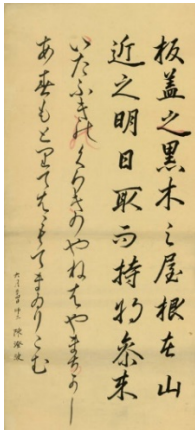 板盖之黒木之屋根在山
近之明日取而持物参来
いたふきのくろきのやねはやまちかし
あすもとりてはもてまゐりこむ
陳澄波